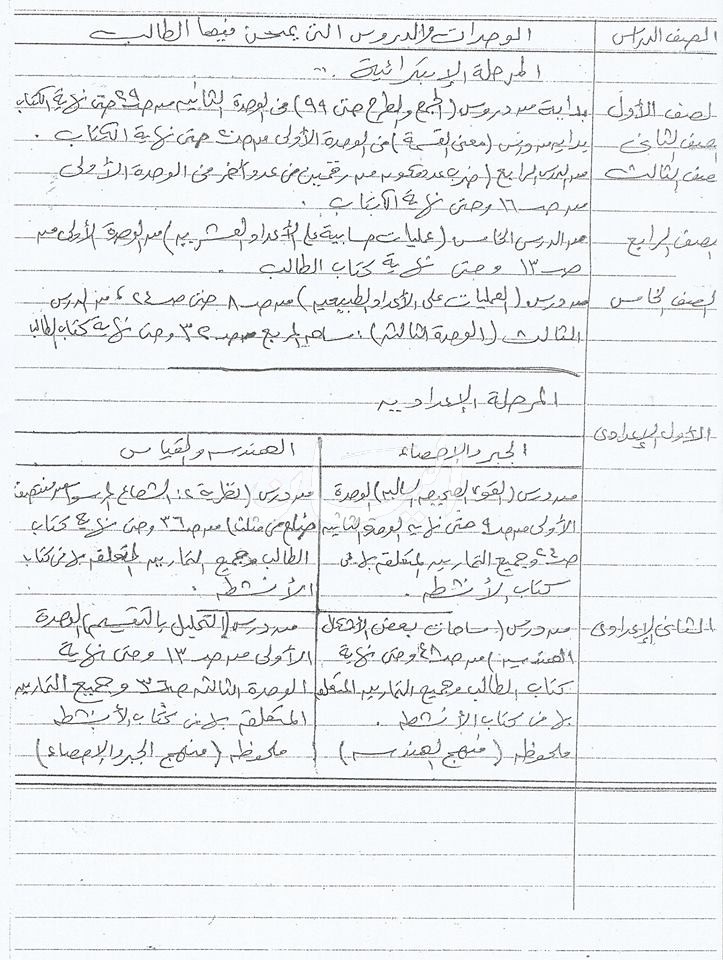 الصف الدراسى الوحدات والدروس التى يمتحن فيها الطالب
المرحلة الإبتدائية
الصف الأول بداية من دروس (الجمع والطرح حتى ٩٩) فى الوحدة الثانية من صـ ٢٩ حتى نهاية الكتاب
الصف الثانى بداية من درس (معنى القسمة) من الوحدة الأولى من صـ حتى نهاية الكتاب .
الصف الثالث من الدرس الرابع (ضرب عدد مكون من رقمين فى عدد آخر من الوحدة الأولى
من صـ ١٦ وحتى نهاية الكتاب .
الصف الرابع من الدرس الخامس (عمليات حسابية على الأعداد العشرية) من الوحدة الأولى من
صـ ١٣ وحتى نهاية كتاب الطالب .
الصف الخامس من درس (العمليات على الأعداد الطبيعية) من صـ ٨ حتى صـ ٢٤ ، من الدرس
الثالث (الوحدة الثالثة) : مساحة المربع من صـ ٣٥ وحتى نهاية كتاب الطالب
المرحلة الإعدادية
الأول الإعدادى
الجبر والإحصاء
من درس (القوى الصحيحة السالبة) الوحدة
الأولى من صـ ٩ حتى نهاية الوحدة الثانية
صـ ٢٤ وجميع التمارين المتعلقة بها فى
كتاب الأنشطة .
الهندسة والقياس
من درس (نظرية ٢ : الشعاع المرسوم من منتصف
ضلع فى مثلث) من صـ ٣٦ وحتى نهاية كتاب
الطالب وجميع التمارين المتعلقة بها فى كتاب
الأنشطة .
الثانى الإعدادى
من درس (مساحات بعض الأشكال
الهندسية) من صـ ٤٨ وحتى نهاية
كتاب الطالب وجميع التمارين المتعلقة
بها فى كتاب الأنشطة .
ملحوظة (منهج الهندسة)
من درس (التحليل بالتقسيم) الوحدة
الأولى من صـ ١٣ وحتى نهاية
الوحدة الثالثة صـ ٣٦ وجميع التمارين
المتعلقة بها فى كتاب الأنشطة
ملحوظة (منهج الجبر والإحصاء)